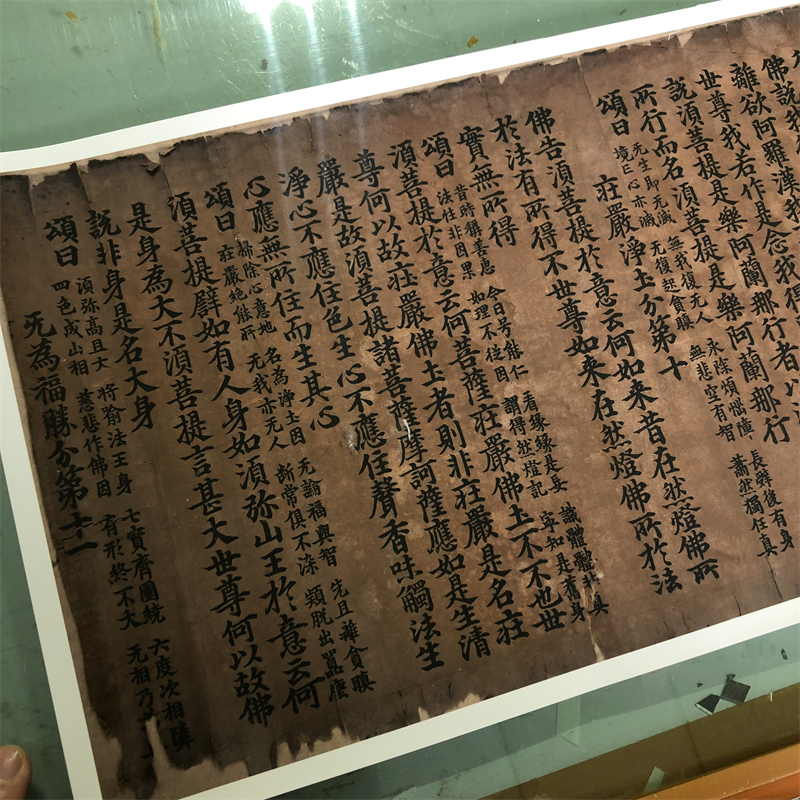 佛說我
離欲阿羅漢我
世尊我若作是念我得
說須菩提是樂阿蘭那行者以
所行而名須菩提是樂阿蘭那行
頌曰
无生即无滅 无我復无人 永除煩惱障 長辞後有身
境亡心亦滅 无復起貪瞋 無悲空有智 蕭然獨任真
莊嚴淨土分第十
佛告須菩提於意云何如来昔在然燈佛所
於法有所得不世尊如来在然燈佛所於法
實無所得
頌曰
昔時稱善慧 今日号能仁 看緣緣是妄 識體體非真
法性非因果 如理不從因 謂得然燈記 寧知是舊身
須菩提於意云何菩薩莊嚴佛土不不也世
尊何以故莊嚴佛土者則非莊嚴是名莊
嚴是故須菩提諸菩薩摩訶薩應如是生清
淨心不應住色生心不應住聲香味觸法生
心應無所住而生其心
頌曰
掃除心意地 名為淨土因 无論福與智 先且離貪瞋
莊嚴絕能所 无我亦无人 断常俱不染 穎脫出囂塵
須菩提譬如有人身如須弥山王於意云何
是身為大不須菩提言甚大世尊何以故佛
說非身是名大身
頌曰
須弥高且大 將喻法王身 七寶齊圍繞 六度次相隣
四色成山相 慈悲作佛因 有形終不大 无相乃
无為福勝分第十一